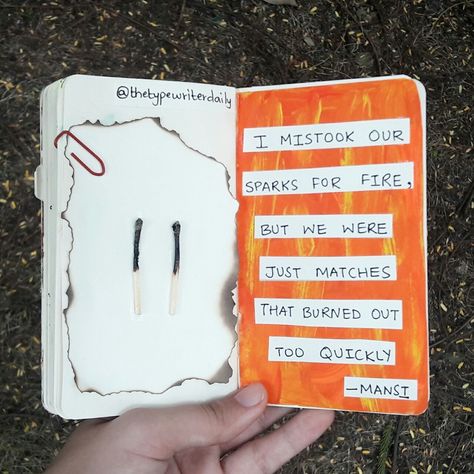 @thetypewriterdaily
I MISTOOK OUR
SPARKS FOR FIRE,
BUT WE WERE
JUST MATCHES
THAT BURNED OUT
TOO QUICKLY
—MANSI